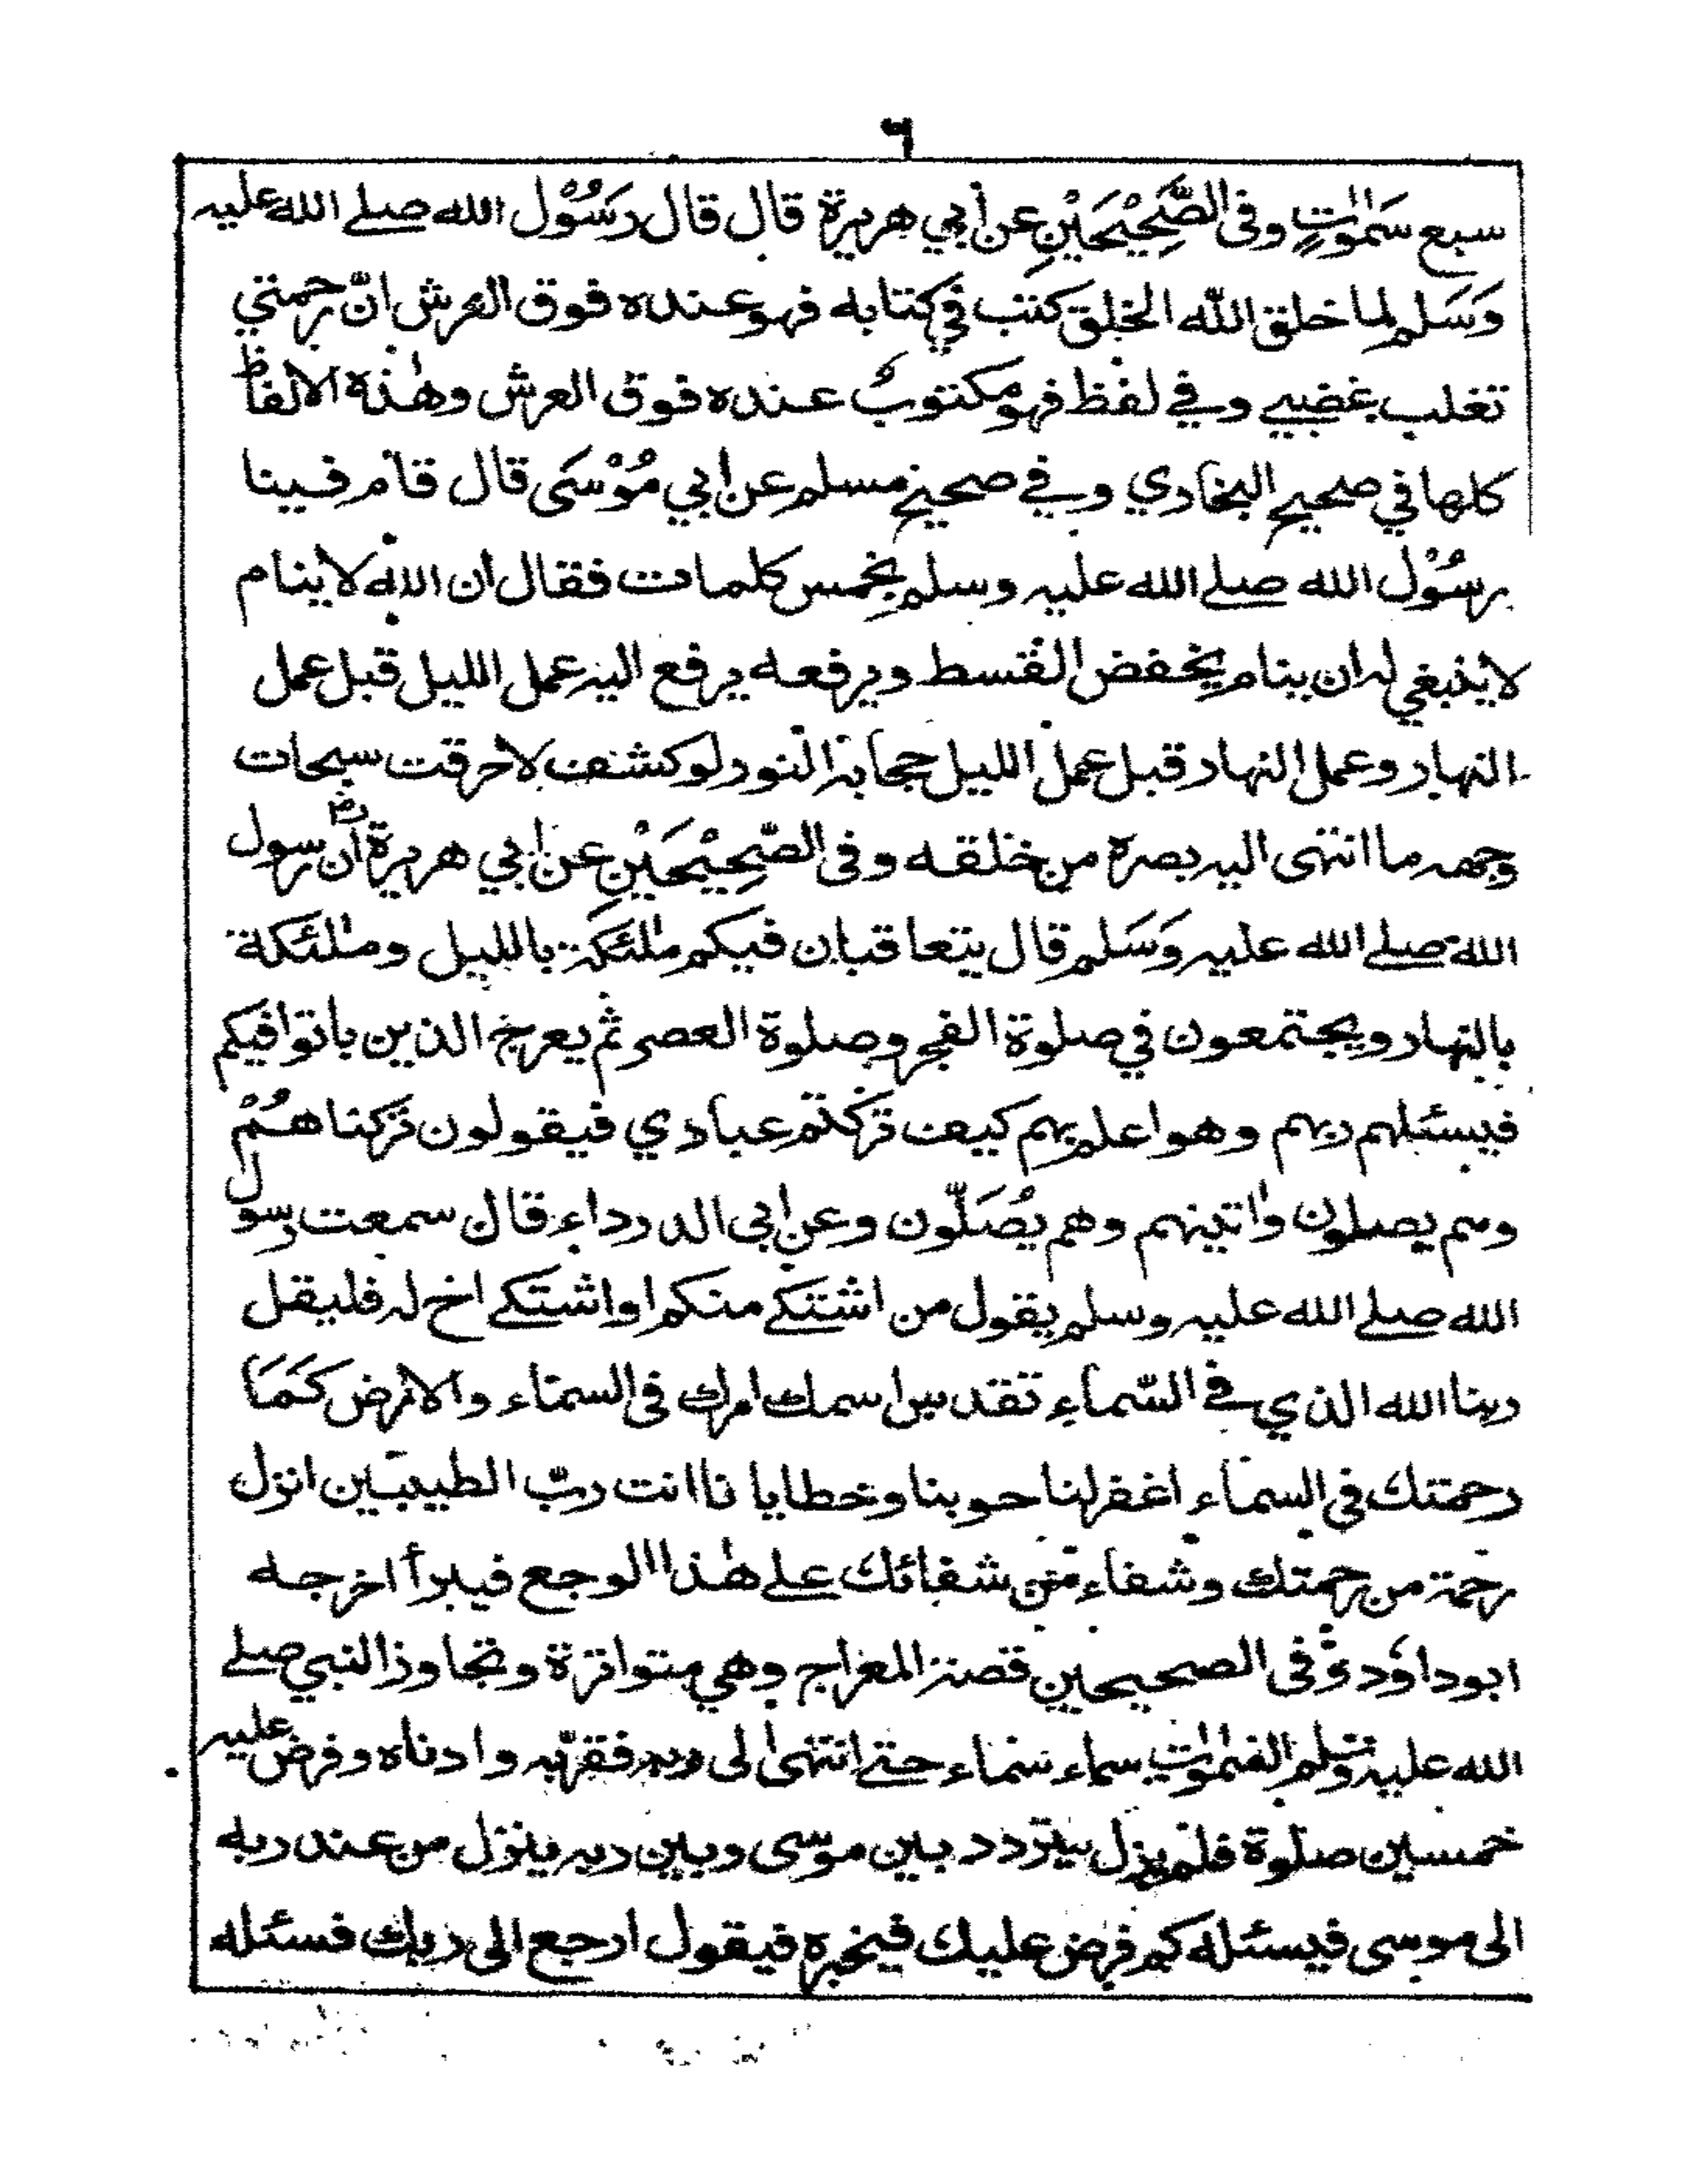 ٦
سبع سَمٰوٰتٍ وفى الصَّحِيْحَيْنِ عن أبي هريرة قال قال رَسُوْل الله صلے الله عليه
وَسَلم لما خلق اللّه الخلق كتب في كتابه فهو عنده فوق العرش انّ رحمتي
تغلب غضبي وفي لفظ فهو مكتوبٌ عنده فوق العرش وهٰذه الالفاظ
كلها في صحيح البخاري وفي صحيح مسلم عن ابي مُوْسَى قال قام فينا
رسُوْل الله صلے الله عليه وسلم بخمس كلمات فقال ان الله لا ينام
لا ينبغي له ان ينام يخفض القسط ويرفعه يرفع اليه عمل الليل قبل عمل
النهار وعمل النهار قبل عمل الليل حجابه النور لو كشف لاحرقت سبحات
وجهه ما انتهى اليه بصره من خلقه وفى الصَّحِيْحَيْنِ عن ابي هريرة رض ان رسول
الله صلے الله عليه وَسَلم قال يتعاقبان فيكم ملٰئكة بالليل وملٰئكة
بالنهار ويجتمعون في صلوة الفجر وصلوة العصر ثم يعرج الذين باتوا فيكم
فيسئلهم ربهم وهو اعلم بهم كيف تركتم عبادي فيقولون تركنا هُمْ
وهم يصلون واتينهم وهم يُصَلّون وعن ابى الدرداء قال سمعت رسول
الله صلے الله عليه وسلم يقول من اشتكے منكم او اشتكے اخ له فليقل
ربنا الله الذي في السّماءِ تقدس اسمك امرك فى السماء والارض كَمَا
رحمتك فى السماء اغفر لنا حوبنا وخطايا نا انت ربّ الطيبين انزل
رحمة من رحمتك وشفاء من شفائك علے هٰذا الوجع فيبرأ اخرجه
ابو داؤد وفى الصحيحين قصة المعراج وهي متواترة وتجاوز النبي صلے
الله عليه وسلم السمٰوٰت سماء سماء حتے انتهىٰ الى ربه فقرّبه وادناه وفرض عليه
خمسين صلوة فلم يزل يتردد بين موسى وبين ربه ينزل من عند ربه
الى موسى فيسئله كم فرض عليك فيخبره فيقول ارجع الى ربك فسئله